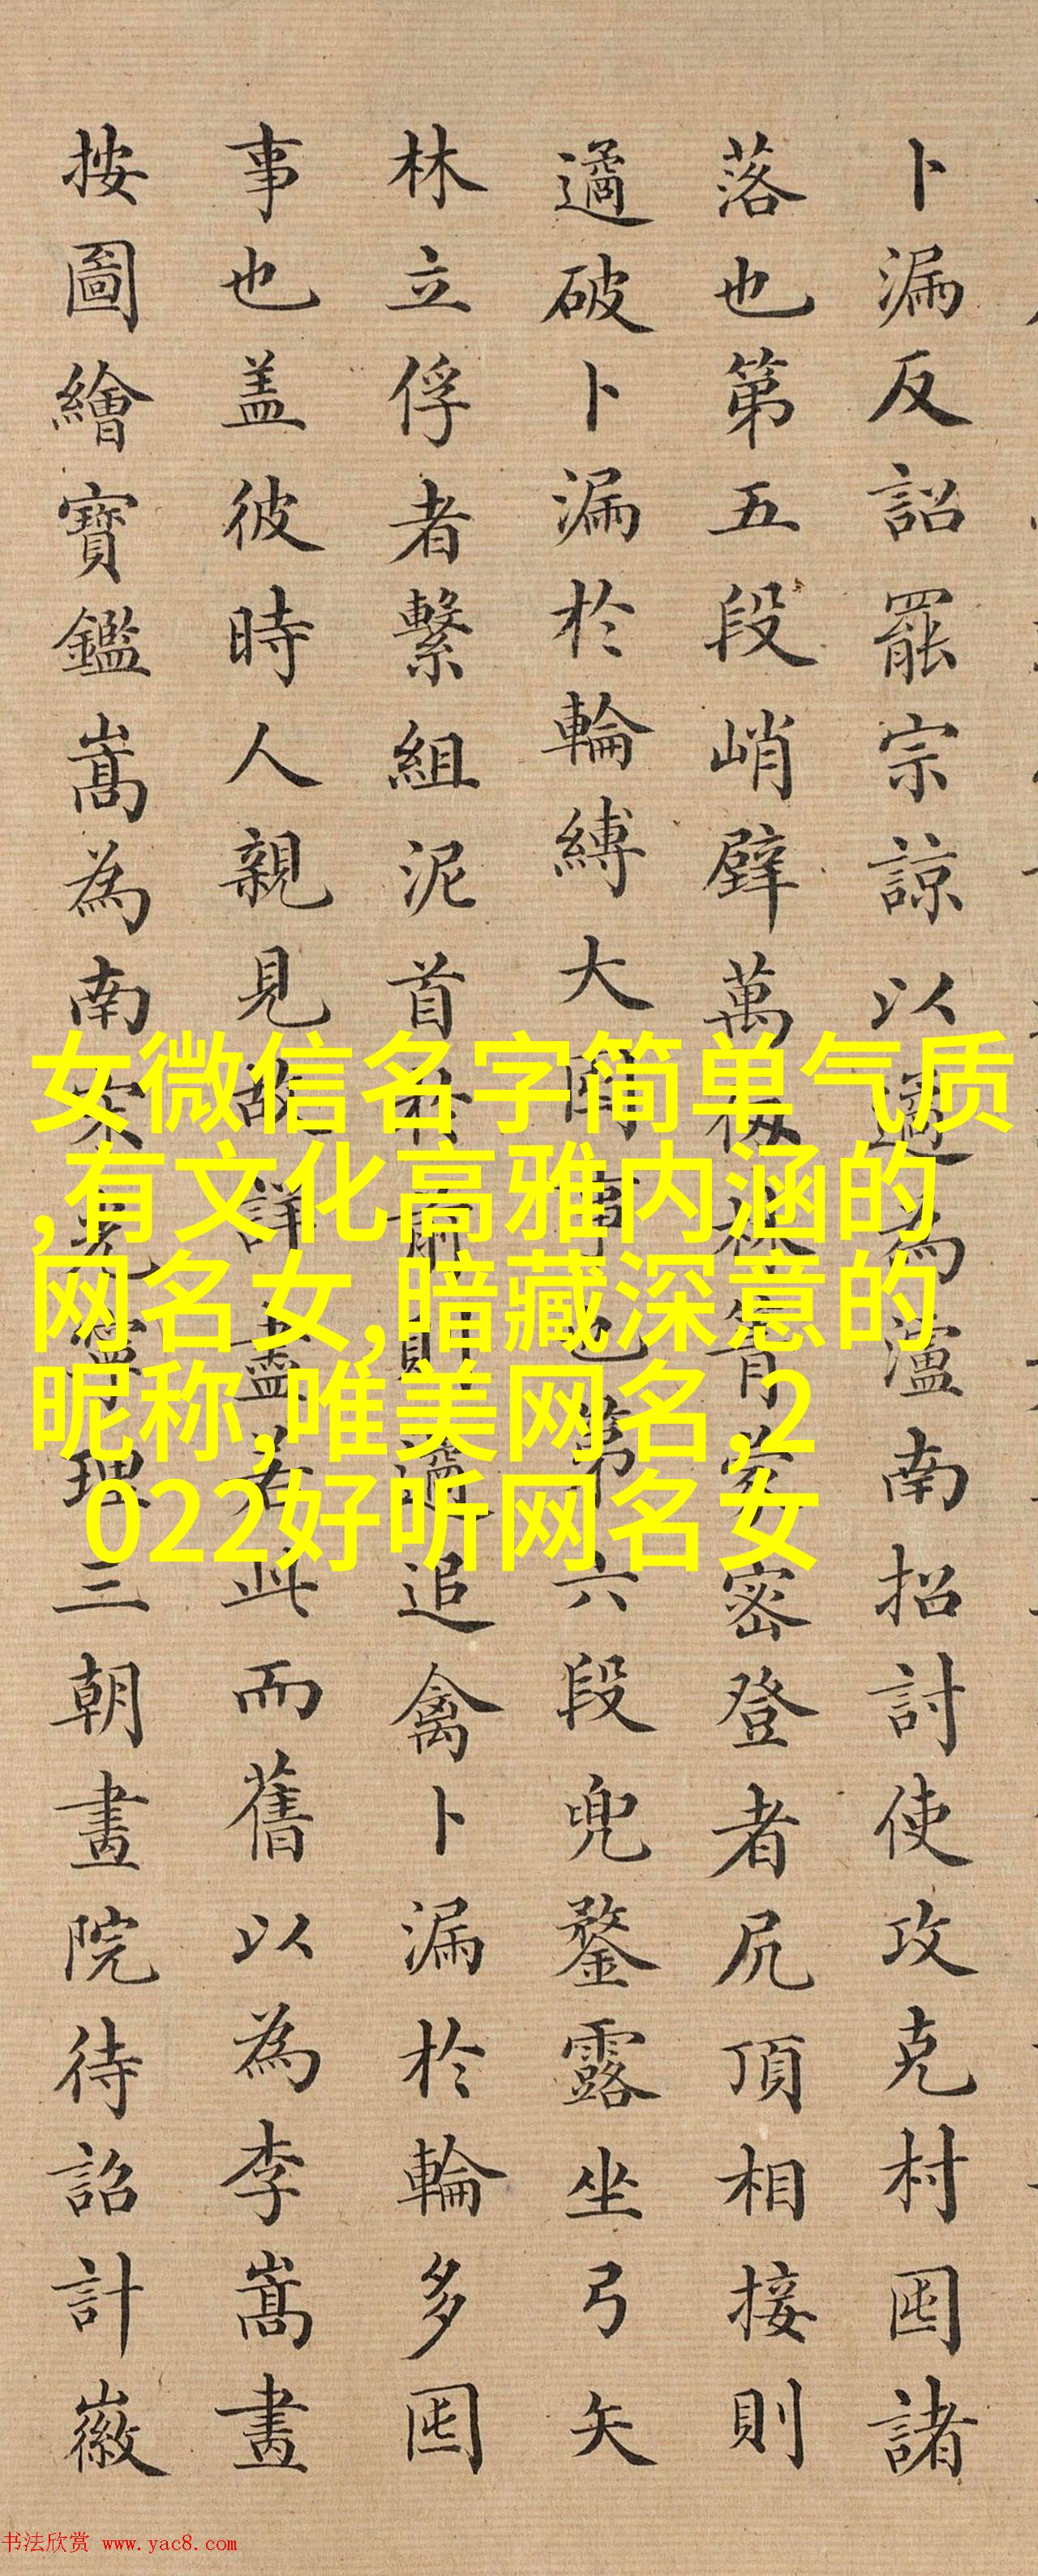 卜漏反詔罷宗諒以遹為瀘南招討使攻克村囤諸
落也第五段峭壁萬仞林箐蒙密登者尻頂相接則
遹破卜漏於輪縛大囤事也第六段兜鍪露坐弓矢
林立俘者繫組泥首於前則遹追禽卜漏於輪多囤
事也盖彼時人親見故詳盡若此而舊以為李嵩畫
按圖繪寶鑑嵩為南宋光寧理三朝畫院待詔計徽
女微信名字简单气质
,有文化高雅内涵的
网名女,暗藏深意的
昵称,唯美网名,2
022好听网名女
书法欣赏 www.yac8.com